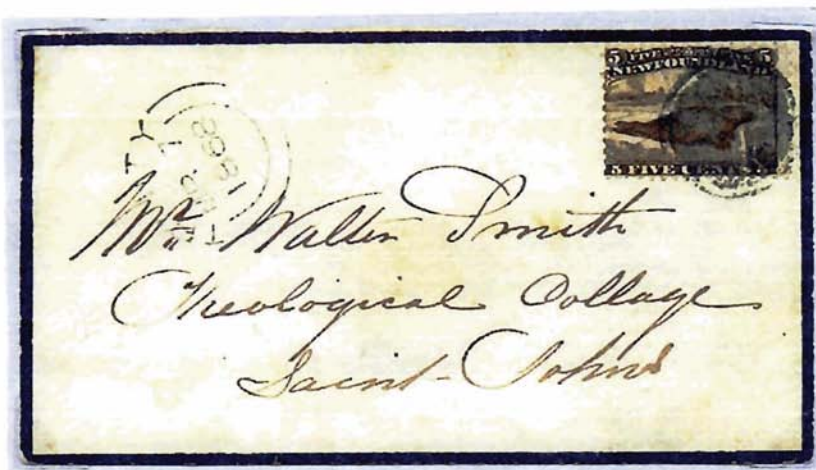 5 FIVE CENTS 5
NEWFOUNDLAND
5 FIVE CENTS 5
1868
Mr. Walter Smith
Theological Collage
Saint-Johns